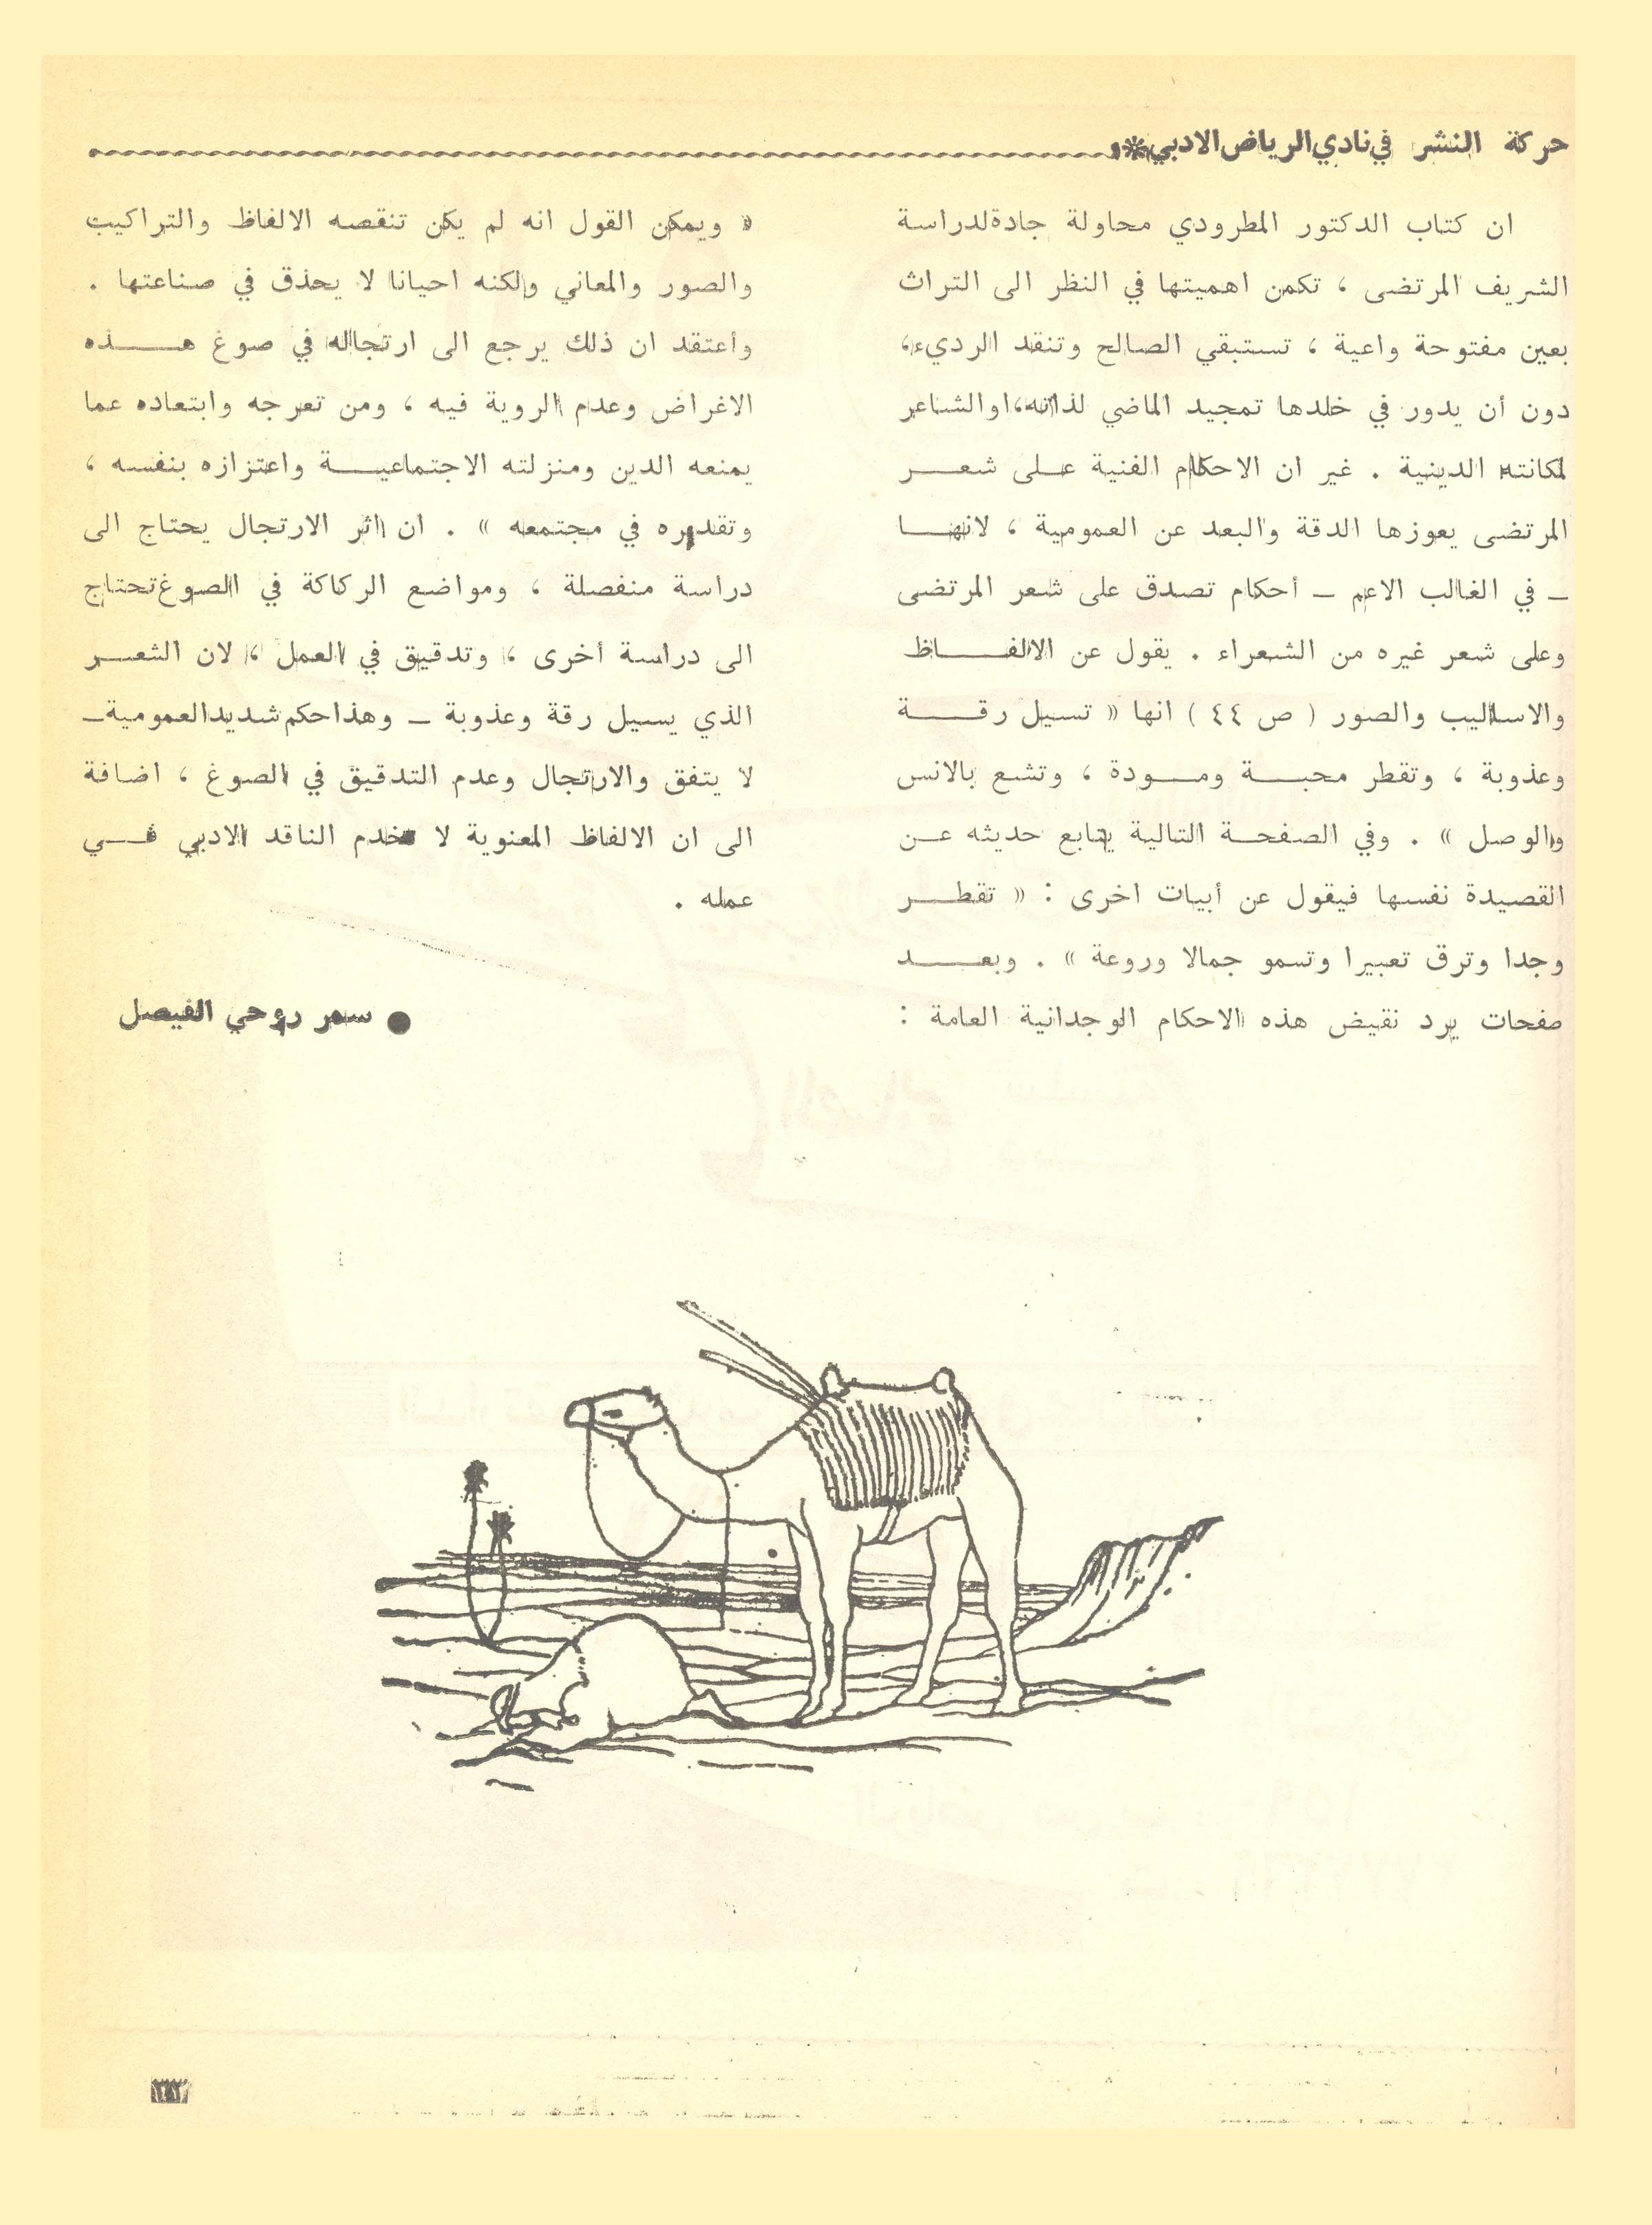 حركة النشر في نادي الرياض الادبي
ان كتاب الدكتور المطرودي محاولة جادة لدراسة
الشريف المرتضى ، تكمن اهميتها في النظر الى التراث
بعين مفتوحة واعية ، تستبقي الصالح وتنقد الرديء،
دون أن يدور في خلدها تمجيد الماضي لذاته، او الشاعر
لمكانته الدينية . غير ان الاحكام الفنية عـلى شعـر
المرتضى يعوزها الدقة والبعد عن العمومية ، لانهـا
ـ في الغالب الاعم ـ أحكام تصدق على شعر المرتضى
وعلى شعر غيره من الشعراء . يقول عن الالفـاظ
والاساليب والصور ( ص ٤٤ ) انها « تسيل رقـة
وعذوبة ، وتقطر محبـة ومـودة ، وتشع بالانس
والوصل » . وفي الصفحـة التالية يتابع حديثه عـن
القصيدة نفسها فيقول عن أبيات اخرى : « تقطـر
وجدا وترق تعبيرا وتسمو جمالا وروعة » . وبعـد
صفحات يرد نقيض هذه الاحكام الوجدانية العامة :
« ويمكن القول انه لم يكن تنقصه الالفاظ والتراكيب
والصور والمعاني ولكنه احيانا لا يحذق في صناعتها .
وأعتقد ان ذلك يرجع الى ارتجاله في صوغ هـذه
الاغراض وعدم الروية فيه ، ومن تعرجه وابتعاده عما
يمنعه الدين ومنزلته الاجتماعيـة واعتزازه بنفسه ،
وتقديره في مجتمعه » . ان اثر الارتجال يحتاج الى
دراسة منفصلة ، ومواضع الركاكة في الصوغ تحتاج
الى دراسة أخرى ، وتدقيق في العمل ، لان الشعـر
الذي يسيل رقة وعذوبة ـ وهذا حكم شديد العمومية ـ
لا يتفق والارتجال وعدم التدقيق في الصوغ ، اضافة
الى ان الالفاظ المعنوية لا تخدم الناقد الادبي فـي
عمله .
● سمر روحي الفيصل